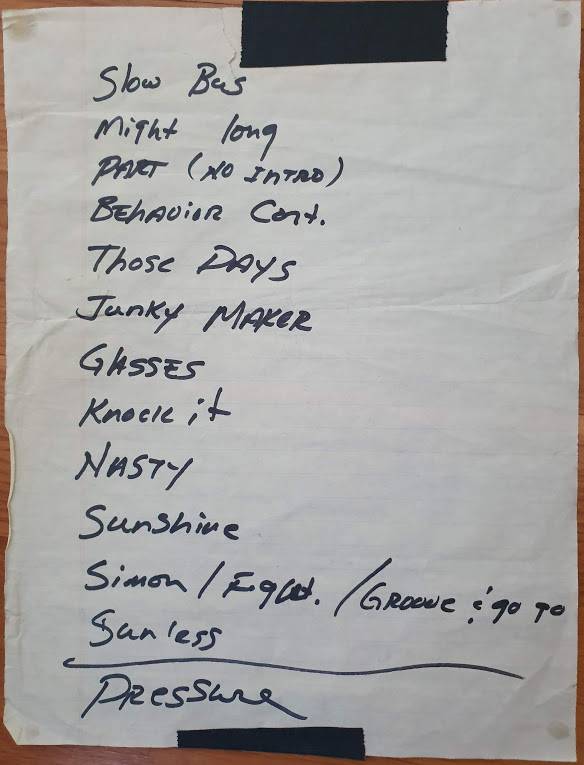 Slow Bus
Might long
PART (NO INTRO)
BEHAVIOR Cont.
Those DAYS
Junky MAKER
GLASSES
Knock it
NASTY
Sunshine
Simon / / GROOVE & go to
Sunless
Pressure